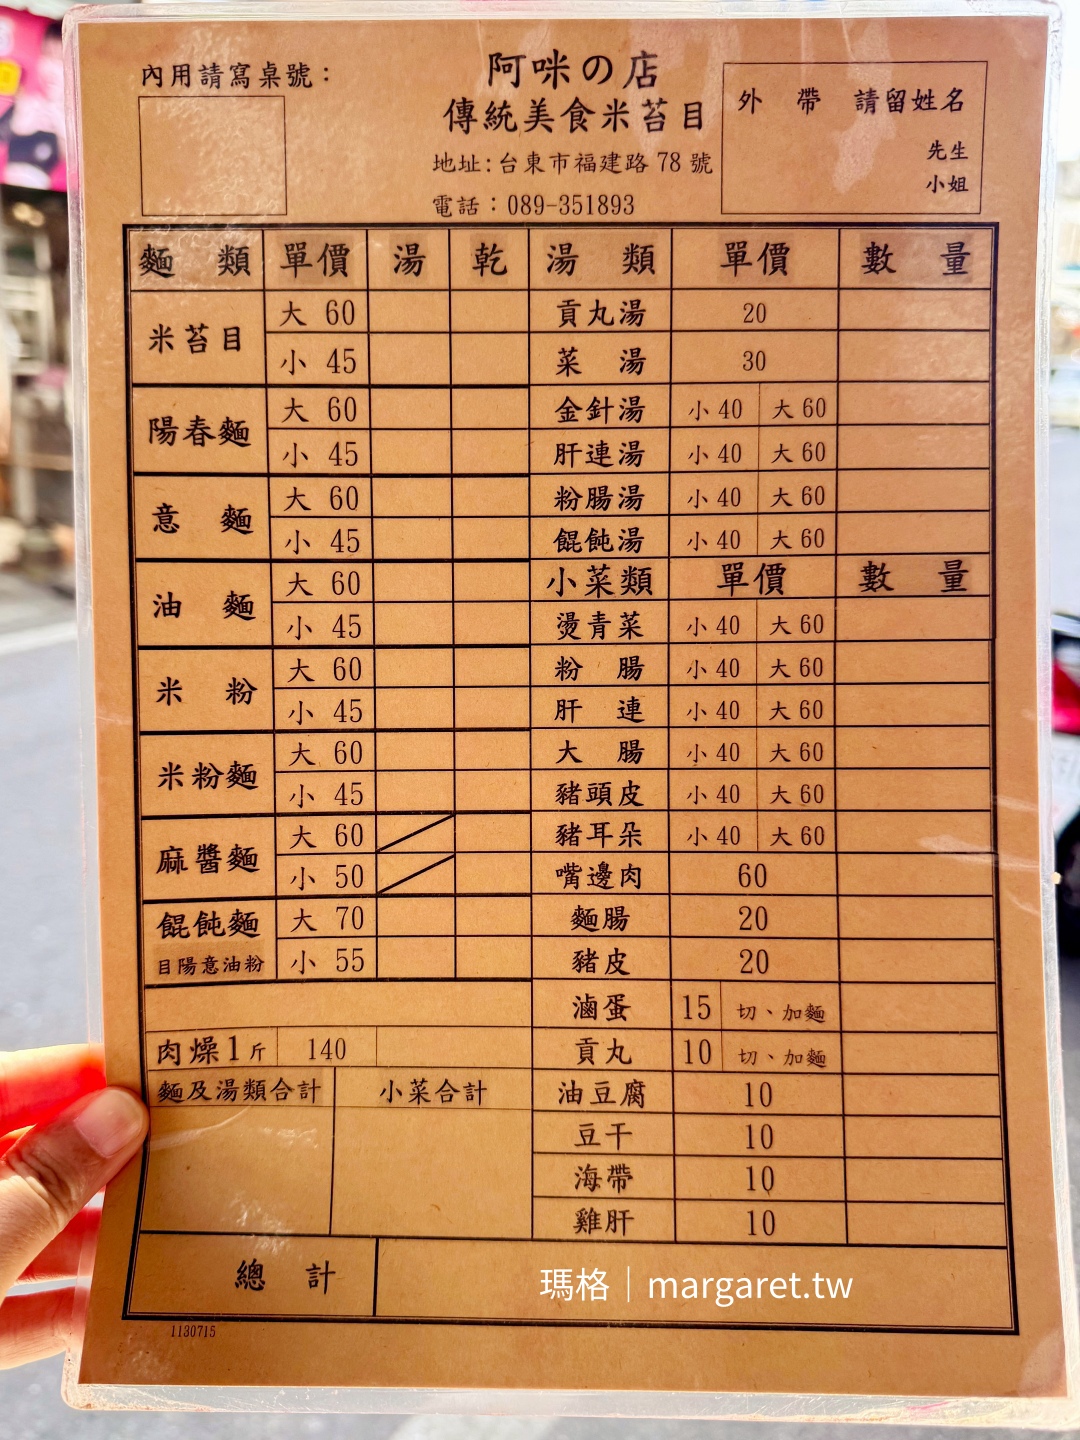 內用請寫桌號：
阿咪の店
傳統美食米苔目
地址:台東市福建路 78 號
電話：089-351893
外 帶 請留姓名
先生
小姐
麵 類 單價 湯 乾 湯 類 單價 數 量
米苔目 大 60 貢丸湯 20
小 45 菜 湯 30
陽春麵 大 60 金針湯 小 40 大 60
小 45 肝連湯 小 40 大 60
意 麵 大 60 粉腸湯 小 40 大 60
小 45 餛飩湯 小 40 大 60
油 麵 大 60 小菜類 單價 數 量
小 45 燙青菜 小 40 大 60
米 粉 大 60 粉 腸 小 40 大 60
小 45 肝 連 小 40 大 60
米粉麵 大 60 大 腸 小 40 大 60
小 45 豬頭皮 小 40 大 60
麻醬麵 大 60 豬耳朵 小 40 大 60
小 50 嘴邊肉 60
餛飩麵 大 70 麵腸 20
目陽意油粉 小 55 豬皮 20
滷蛋 15 切、加麵
肉燥1斤 140 貢丸 10 切、加麵
麵及湯類合計 小菜合計 油豆腐 10
豆干 10
海帶 10
雞肝 10
總 計
瑪格｜margaret.tw
1130715